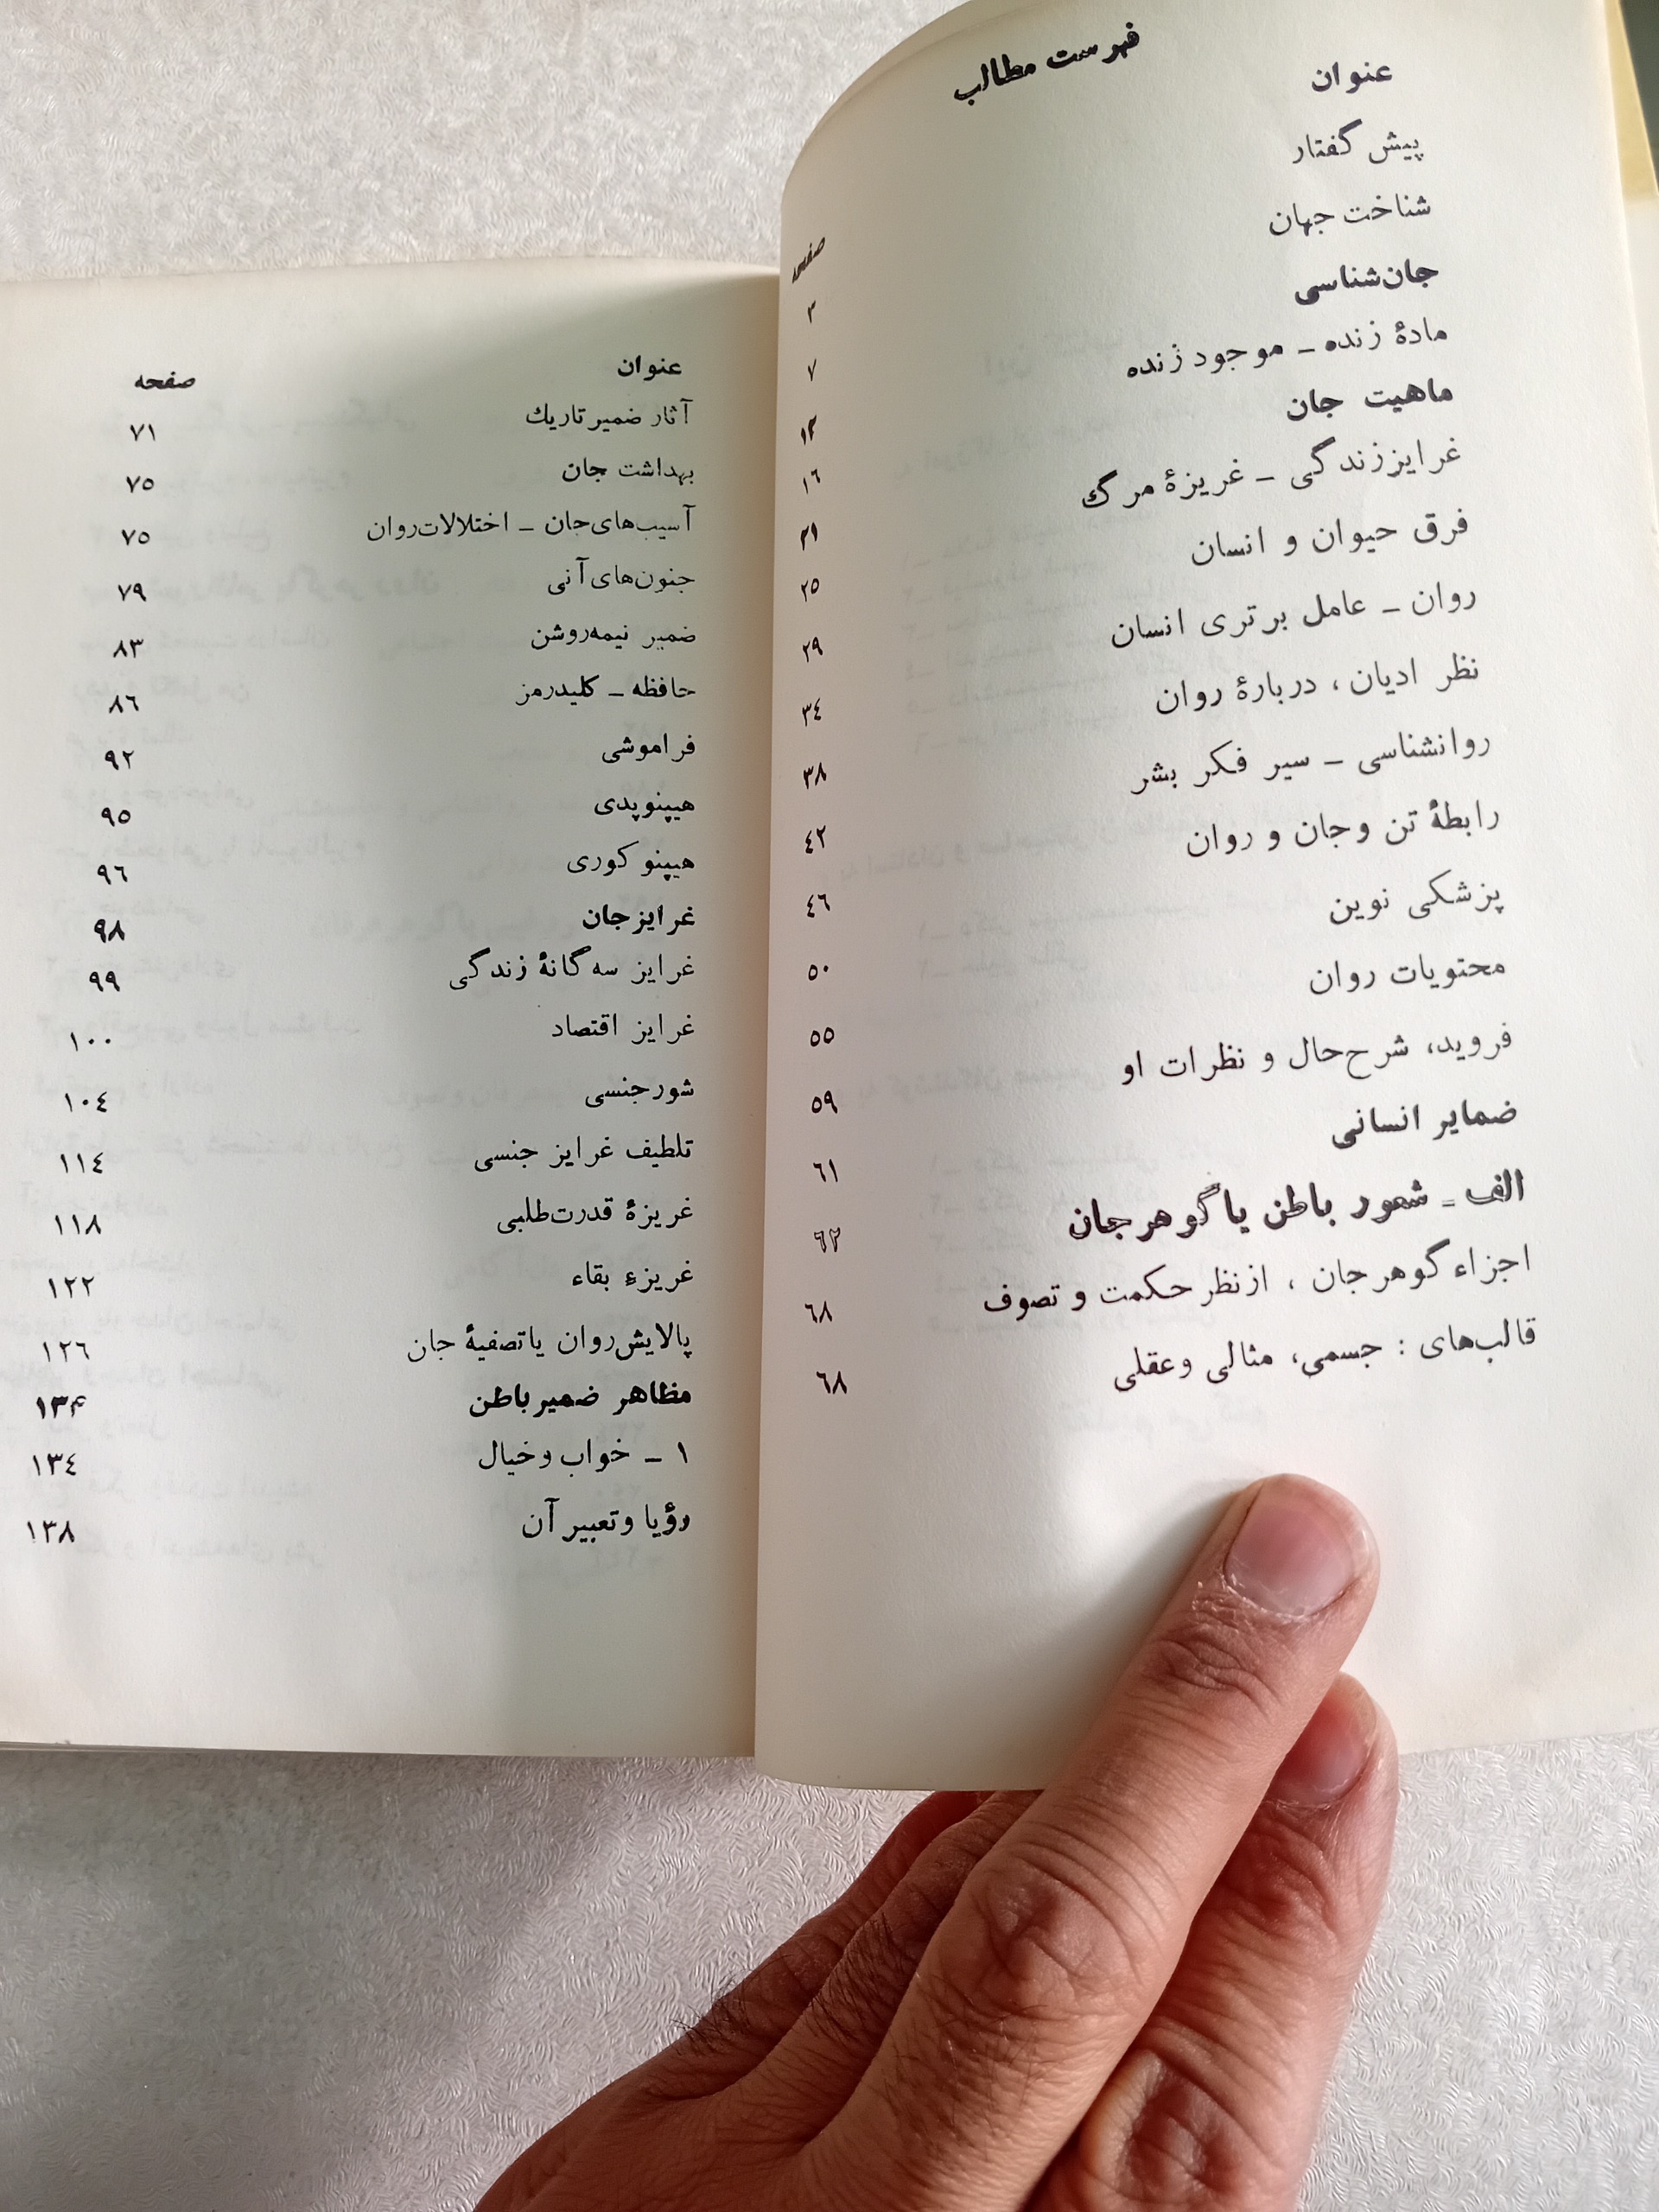 فهرست مطالب
عنوان صفحه
پیش گفتار ۳
شناخت جهان ۷
جان‌شناسی ۱۲
مادهٔ زنده ـ موجود زنده ۱٦
ماهیت جان ۲۱
غرایززندگی ـ غریزهٔ مرگ ۲۵
فرق حیوان و انسان ۲۹
روان ـ عامل برتری انسان ۳٤
نظر ادیان، دربارهٔ روان ۳۸
روانشناسی ـ سیر فکر بشر ٤۲
رابطهٔ تن وجان و روان ٤٦
پزشکی نوین ۵۰
محتویات روان ۵۵
فروید، شرح‌حال و نظرات او ۵۹
ضمایر انسانی ٦۱
الف ـ شعور باطن یاگوهرجان ٦۲
اجزاء گوهرجان ، ازنظر حکمت و تصوف ٦۸
قالب‌های : جسمی، مثالی وعقلی ٦۸
عنوان صفحه
آثار ضمیرتاریك ۷۱
بهداشت جان ۷۵
آسیب‌های‌جان ـ اختلالات‌روان ۷۵
جنون‌های‌آنی ۷۹
ضمیر نیمه‌روشن ۸۳
حافظه ـ کلیدرمز ۸٦
فراموشی ۹۲
هیپنوپدی ۹۵
هیپنوکوری ۹٦
غرایزجان ۹۸
غرایز سه‌گانهٔ زندگی ۹۹
غرایز اقتصاد ۱۰۰
شورجنسی ۱۰٤
تلطیف غرایز جنسی ۱۱٤
غریزهٔ قدرت‌طلبی ۱۱۸
غریزهء بقاء ۱۲۲
پالایش‌روان یاتصفیهٔ جان ۱۲٦
مظاهر ضمیرباطن ۱۳۴
۱ ـ خواب وخیال ۱۳٤
رؤیا وتعبیرآن ۱۳۸